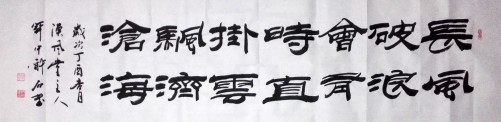 長風
破浪
會有
時直
掛雲
颿濟
滄海
歲次丁酉杏月
漢風堂主人